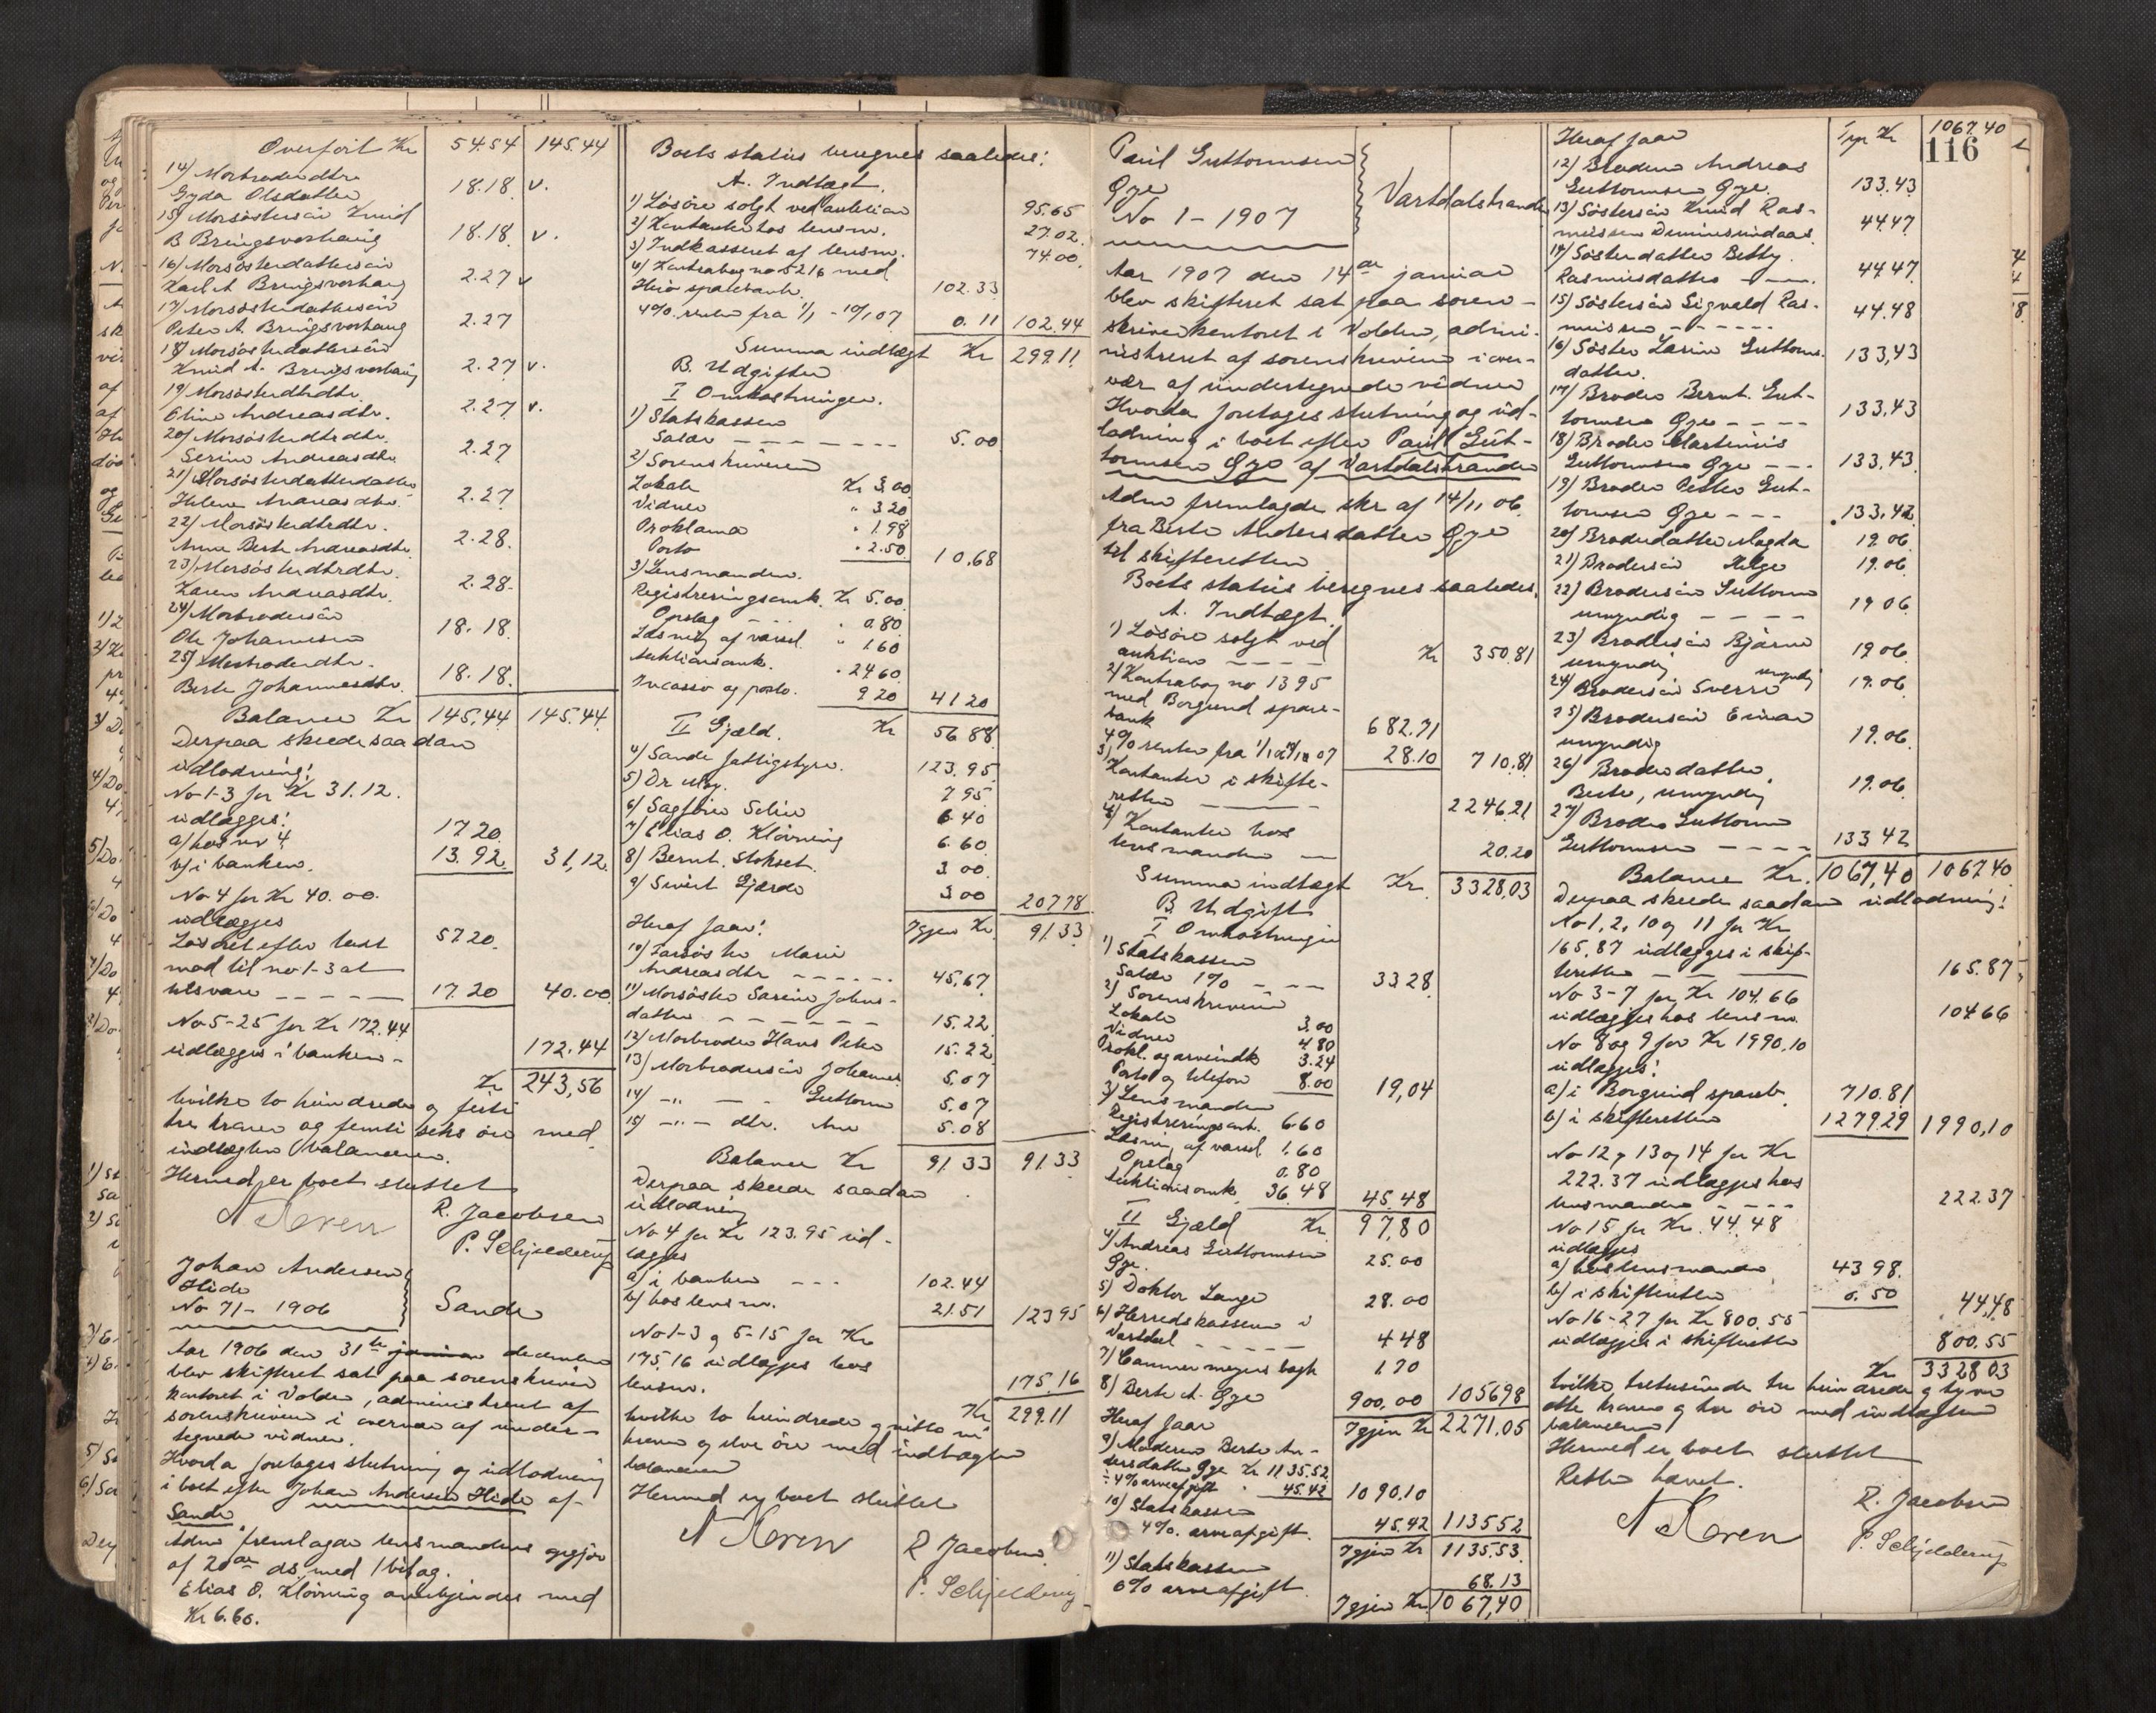 Overført Kr 54.54 145.44
14) Morbroderdtr
Gyda Olsdatter 18.18 v.
15) Morsøstersøn Knud
B Bringsvorhaug 18.18 v.
16) Morsøsterdattersøn
Karl A Bringsvorhaug 2.27 v
17) Morsøsterdattersøn
Peter A. Bringsvorhaug 2.27
18) Morsøsterdattersøn
Knud A. Bringsvorhaug 2.27 v.
19) Morsøsterdtrdtr.
Eline Andreasdtr. 2.27 v.
20) Morsøsterdtrdtr.
Serine Andreasdtr 2.27
21) Morsøsterdatterdatter
Helene Andreasdtr. 2.27
22) Morsøsterdtrdtr.
Anne Berte Andreasdtr. 2.28.
23) Morsøsterdtrdtr.
Karen Andreasdtr. 2.28.
24) Morbrodersøn
Ole Johannesen 18.18.
25) Morbroderdtr.
Berte Johannesdtr. 18.18.
Balance Kr 145,44 145.44
Derpaa skeede saadan
udlodning:
No 1-3 for Kr 31.12.
udlægges:
a) hos nr 4. 17 20
b) i banken. 13.92. 31,12.
No 4 for Kr 40.00.
udlægges
Løsøret efter taxt 57 20.
mod til no 1-3 at
utsvare 17.20 40.00
No 5-25 for Kr 172.44
udlægges i banken 172.44
Kr 243,56
hvilke to hundrede og førti
tre kroner og femti seks øre med
indtægten balancerer.
Hermed er boet sluttet
R. Jacobsen
P. Schjelderup
Johan Andersen
Hide
No 71 - 1906 Sande
Aar 1906 den 31te januar december
blev skifteret sat paa sorenskriver
kontoret i Volden, administreret af
sorenskriveren i overvær af under-
tegnede vidner.
Hvorda foretages slutning og udlodning
i boet efter Johan Andersen Hide af
Sande
Adm fremlagde lensmandens opgjør
af 20de ds. med 1 bilag.
Elias O. Kløvning anerkjendes med
Kr 6.60.
Boets status beregnes saaledes:
A. Indtægt.
1) Løsøre solgt ved auktion 95.65
2) Kontanter hos lensm. 27.02.
3) Indkasseret af lensm. 74.00.
4) Kontrabog no 5216 med
Herø sparebank. 102.33
4% renter fra 1/1 - 10/1 07 0.11 102.44
Summa indtægt Kr 299.11
B. Udgifter
I Omkostninger.
1) Statskassen
Salær 5.00
2) Sorenskriveren
Lokale Kr 3.00
Vidner " 3.20
Proklama " 1.98
Porto " 2.50 10.68
3) Lensmanden.
Registreringsomk. Kr 5.00
Opslag " 0.80
Læsning af varsel " 1.60
Auktionsomk. " 24.60
Incasso og porto. 9 20 41 20
II Gjæld. Kr 56 88
4) Sande fattigstyre. 123.95
5) Dr 7 95
6) Sagfører 6 40
7) Elias O. Kløvning 6.60
8) Bernt Stokset 3 00
9) Sivert Gjærde 3 00 207 78
Heraf faar: Igjen Kr. 91.33
10) Farsøster Marie
Andreasdtr 45,67
11) Morsøster Sarine Johns-
datter 15.22
12) Morbroder Hans Peter 15.22
13) Morbrodersøn Johannes 5.07
14) " Guttorm 5.07
15) " dtr. Ane 5.08
Balance Kr 91 33 91 33
Derpaa skeede saadan
udlodning
No 4 for Kr 123.95 ud-
lægges
a) i banken 102.44
b) hos lensm. 21.51 123 95
No 1-3 og 5-15 for Kr
175.16 udlægges hos
lensm. 175.16
Kr 299.11
hvilke to hundrede og nitti ni
kroner og elve øre med indtægten
balancerer
Hermed er boet sluttet
R Jacobsen
P. Schjelderup
Paul Guttormsen
Øye Vartdalstranden
No 1 - 1907
Aar 1907 den 14de januar
blev skifteret sat paa soren-
skriverkontoret i Volden, admi-
nistreret af sorenskriveren i over-
vær af undertegnede vidner
Hvorda foretages slutning og ud-
lodning i boet efter Paul Gut-
tormsen Øye af Vartdalstranden
Adm fremlagde skr af 14/11 06.
fra Berte Andersdatter Øye
til skifteretten
Boets status beregnes saaledes.
A. Indtægt.
1) Løsøre solgt ved
auktion Kr 350.81
2) Kontrabog no 1395
med Borgund spare-
bank 682.71
4% renter fra 07 28.10 710.81
3) Kontanter i skifte-
retten 2246.21
4) Kontanter hos
lensmanden 20.20
Summa indtægt Kr. 3328,03
B. Udgift
I Omkostninger
1) Statskassen
Salær 1% 33 28
2) Sorenskriveren
Lokale 3.00
Vidner 4 80
Prokl. og arveindk 3.24
Porto og telefon 8.00 19,04
3) Lensmanden
Registreringsomk. 6.60
Læsning af varsel 1.60
Opslag 0.80
Auktionsomk. 36.48 45.48
II Gjæld Kr. 97,80
4) Andreas Guttormsen
Øye. 25.00
5) Doktor Lange 28.00
6) Herredskassen i
Vartdal 4 48
7) Cammermeyers bogh 1 70
8) Berte A. Øye 900,00 1056 98
Heraf faar Igjen Kr 2271.05
9) Moderen Berte An-
dersdatter Øye Kr 1135.52
÷ 4% arveafgift " 45.42 1090.10
10) Statskassen
4%. arveafgift. 45.42 1135 52
Igjen Kr 1135.53
11) Statskassen
6% arveafgift. 68.13
Igjen Kr. 1067,40
116
Heraf faar Igjen Kr 1067.40
12) Broderen Andreas
Guttormsen Øye. 133.43
13) Søstersøn Knud Ras-
mussen 44.47
14) Søsterdatter Betty
Rasmusdatter 44.47
15) Søstersøn Sigvald Ras-
mussen 44.48
16) Søster Larine Guttorms-
datter. 133,43
17) Broder Bernt Gut-
tormsen Øye 133,43
18) Broder Martinus
Guttormsen Øye 133,43
19) Broder Petter Gut-
tormsen Øye 133,42
20) Broderdatter Magda 19 06
21) Brodersøn Helge 19.06
22) Brodersøn Guttorm
umyndig 19 06
23) Brodersøn Bjarne
umyndig 19 06
24) Brodersøn Sverre umyndig 19.06
25) Brodersøn Einar
umyndig 19.06
26) Broderdatter
Berte, umyndig 19.06
27) Broder Guttorm
Guttormsen 133 42
Balance Kr. 1067,40 1067.40
Derpaa skeede saadan udlodning:
No 1, 2, 10 og 11 for Kr
165.87 udlægges i skif-
teretten 165.87
No 3-7 for Kr 104.66
udlægges hos lensm. 104 66
No 8 og 9 for Kr 1990.10
udlægges:
a) i Borgund spareb. 710.81
b) i skifteretten 1279.29 1990,10
No 12, 13 og 14 for Kr
222.37 udlægges hos
lensmanden 222.37
No 15 for Kr. 44.48
udlægges
a) hos lensmanden 43 98.
b) i skifteretten 0.50 44,48
No 16-27 for Kr 800.55
udlægges i skifteretten 800.55
Kr 3328 03
hvilke tretusinde tre hundrede og tyve
otte kroner og tre øre med indtægten
balancerer
Hermed er boet sluttet
Retten hævet.
R. Jacobsen
P. Schjelderup